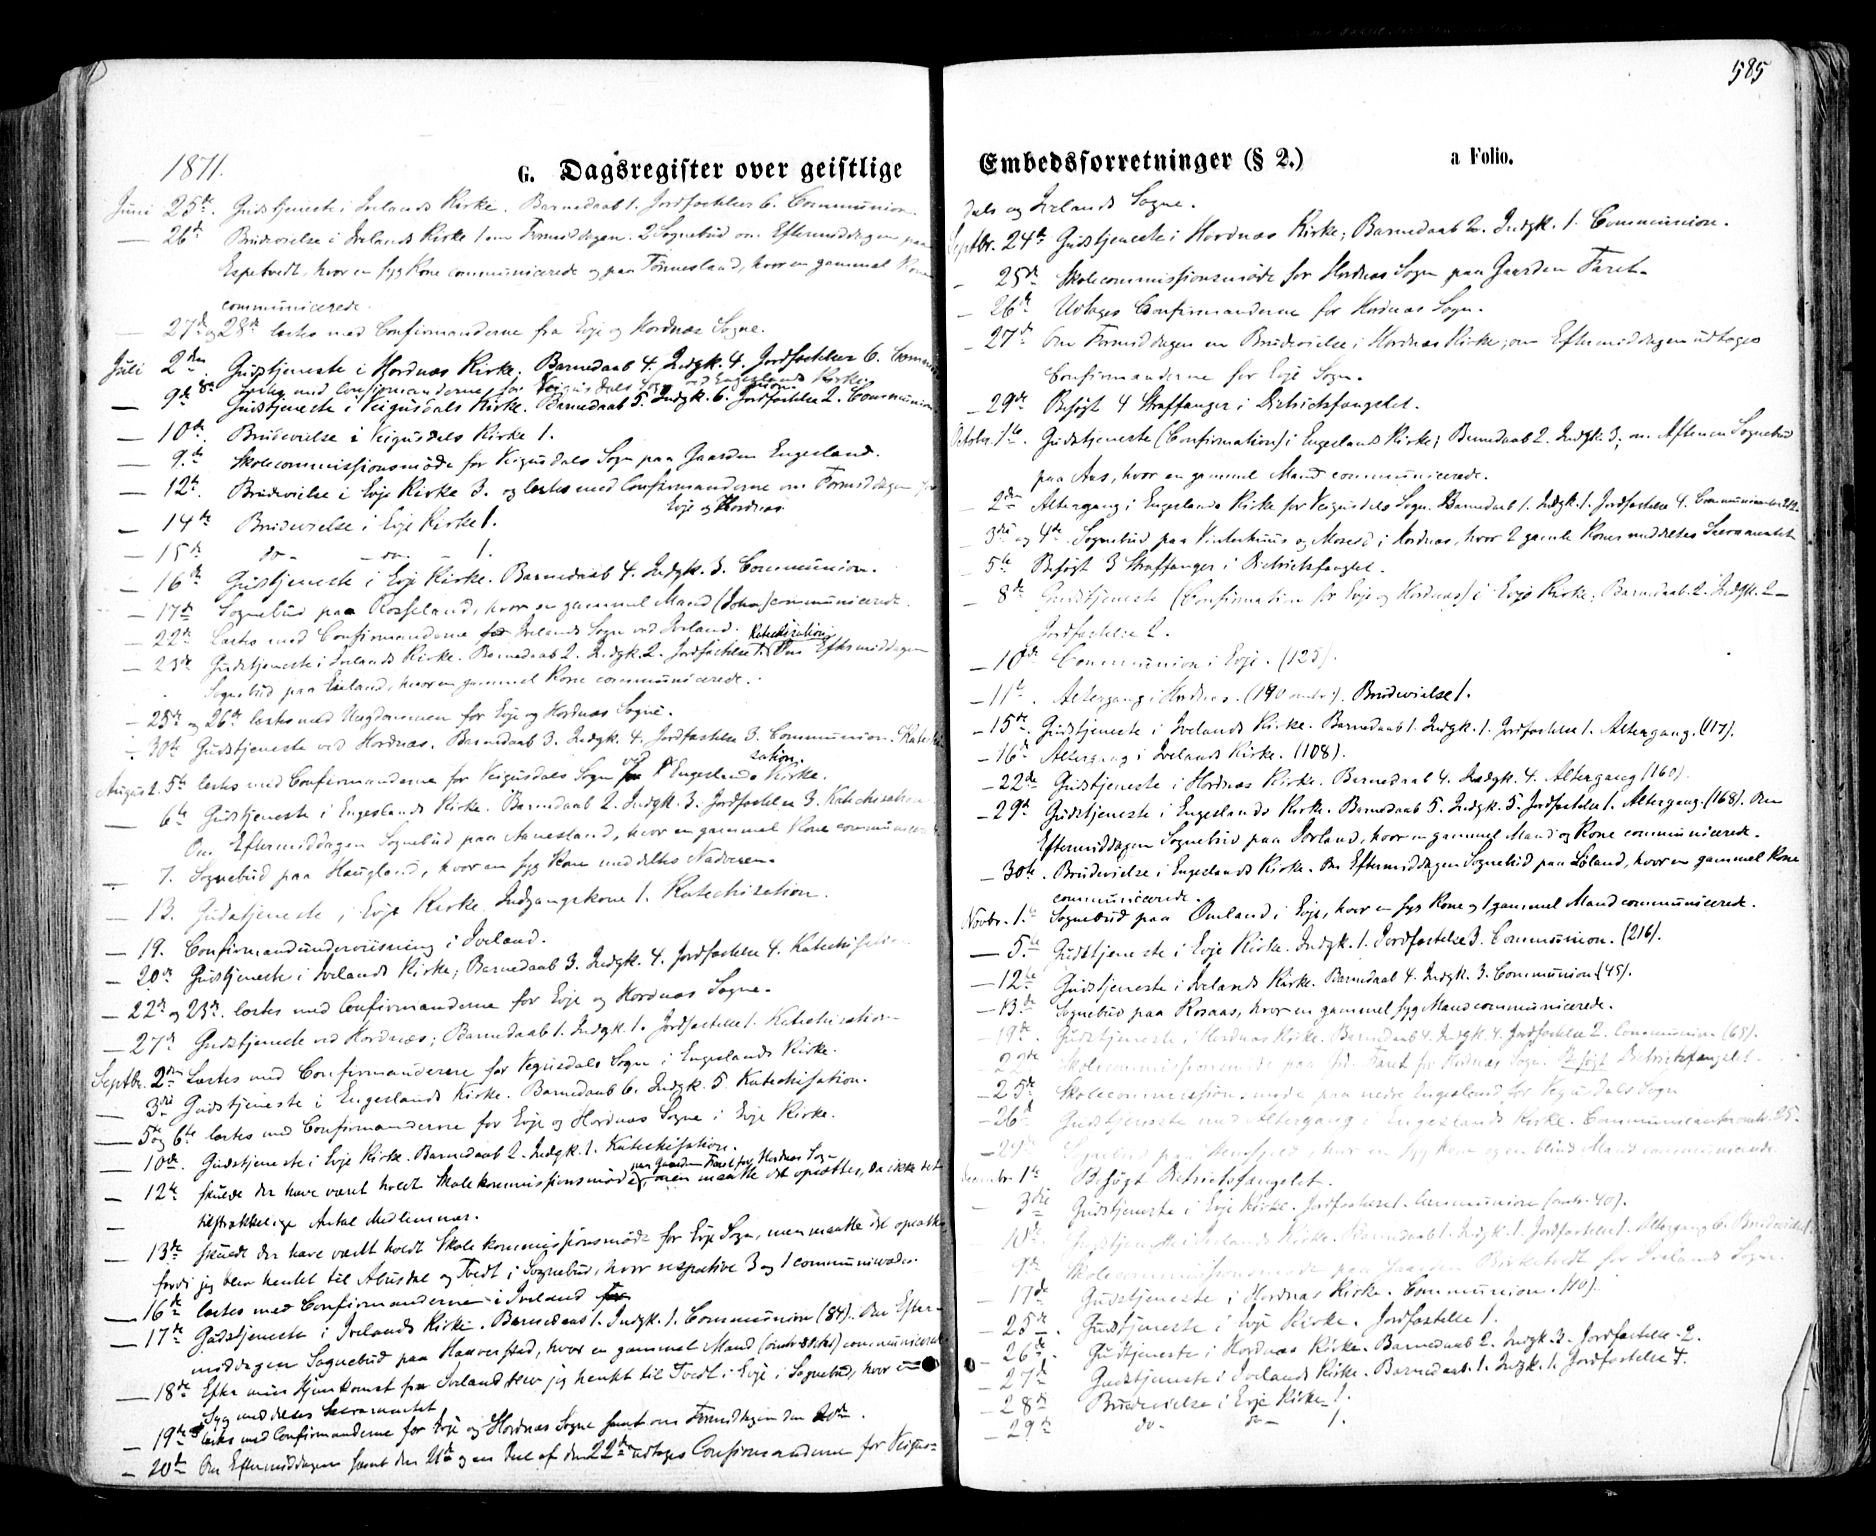 585
1871.
G. Dagsregister over geistlige
Juni 25de. Gudstjeneste i Ivelands Kirke. Barnedaab 1. Jordfæstelser 6. Communion.
— 26de Brudevielse i Ivelands Kirke 1 om Formiddagen. 2 Sognebud om Eftermiddagen paa
Espetvedt, hvor en syg Kone communicerede og paa Tønnesland, hvor en gammel Kone
communicerede.
— 27de og 28de læstes med Confirmanderne fra Evje og Hordnæs Sogne.
Juli 2den Gudstjeneste i Hordnæs Kirke. Barnedaab 4. Indgk. 4. Jordfæstelser 6. Commu-
nion.
8de Læstes med Confirmanderne for Veigusdals Sogn ved Engeslands Kirke.
— 9de Gudstjeneste i Veigusdals Kirke. Barnedaab 5. Indgk. 6. Jordfæstelse 2. Communion
— 10de. Brudevielse i Veigusdals Kirke 1.
— 9de Skolecommissionsmøde for Veigusdals Sogn paa Gaarden Engesland.
— 12te. Brudevielse i Evje Kirke 3. og læstes med Confirmanderne om Formiddagen for
Evje og Hordnæs
— 14de Brudevielse i Evje Kirke 1.
— 15de do - — do - 1.
— 16de Gudstjeneste i Evje Kirke. Barnedaab 4. Indgk. 3. Communion.
— 17de Sognebud paa Rosseland, hvor en gammel Mand (John) communicerede.
— 22de Læstes med Confirmanderne for Ivelands Sogn ved Iveland.
— 23de Gudstjeneste i Ivelands Kirke. Barnedaab 2. Indgk. 2. Jordfæstelse 1. Katechisation Om Eftermiddagen
Sognebud paa Eieland, hvor en gammel Kone communicerede.
— 25de og 26de læstes med Ungdommen for Evje og Hordnæs Sogne.
— 30te Gudstjeneste ved Hordnæs. Barnedaab 3. Indgk. 4. Jordfæstelse 3. Communion. Katechi-
sation.
August 5te læstes med Confirmanderne for Veigusdals Sogn ved Engeslands Kirke.
— 6te Gudstjeneste i Engeslands Kirke. Barnedaab 2. Indgk. 3. Jordfæstelse 3. Katechisation
Om Eftermiddagen Sognebud paa Aanesland, hvor en gammel Kone communicerede
— 7. Sognebud paa Haugland, hvor en syg Kone meddeltes Nadveren.
— 13. Gudstjeneste i Evje Kirke. Indgangskone 1. Katechisation.
— 19. Confirmandunderviisning i Iveland.
— 20de Gudstjeneste i Ivelands Kirke; Barnedaab 3. Indgk. 4. Jordfæstelse 4. Katechisation
— 22de og 23de læstes med Confirmanderne for Evje og Hordnæs Sogne.
— 27de Gudstjeneste ved Hordnæs; Barnedaab 1. Indgk. 1. Jordfæstelse 1. Katechisation
Septbr. 2den Læstes med Confirmanderne for Vegusdals Sogn i Engeslands Kirke.
— 3die Gudstjeneste i Engeslands Kirke. Barnedaab 6. Indgk. 5 Katechisation.
— 5te og 6te læstes med Confirmanderne for Evje og Hordnæs Sogne i Evje Kirke.
— 10de. Gudstjeneste i Evje Kirke. Barnedaab 2. Indgk. 1. Katechisation.
paa Gaarden Faret for Hordnæs Sogn
— 12te skulde der have været holdt Skolekommissionsmøde, men maatte det opsættes, da ikke det
tilstrækkelige Antal Medlemmer.
— 13de skulde der have været holdt Skolekommissionsmøde for Evje Sogn, men maatte det opsættes
fordi jeg blev hentet til Abusdal og Tvedt i Sognebud, hvor respective 3 og 1 communicerede.
— 16de læstes med Confirmanderne i Iveland
— 17de Gudstjeneste i Ivelands Kirke. Barnedaab 1. Indgk. 1. Communion (84). Om Efter-
middagen Sognebud paa Haaverstad, hvor en gammel Mand communicerede
— 18de Efter min Hjemkomst fra Iveland blev jeg hentet til Tvedt i Evje i Sognebud, hvor en
Syg meddeltes Sacramentet
— 19de læstes med Confirmanderne for Evje og Hordnæs Sogne samt om Formiddagen den 20de.
— 20de Om Eftermiddagen samt den 21de og en Deel af den 22de udtoges Confirmanderne for Veigus-
Embedsforretninger (§ 2.) a Folio.
dals og Ivelands Sogne.
Septbr. 24de Gudstjeneste i Hordnæs Kirke; Barnedaab 2. Indgk. 1. Communion.
— 25de Skolecommissionsmøde for Hordnæs Sogn paa Gaarden Faret.
— 26de Udtoges Confirmanderne for Hordnæs Sogn.
— 27de Om Formiddagen en Brudevielse i Hordnæs Kirke; om Eftermiddagen udtoges
Confirmanderne for Evje Sogn.
— 29de Besøgt 4 Straffanger i Districtsfængslet.
Octobr. 1ste. Gudstjeneste (Confirmation) i Engeslands Kirke; Barnedaab 2. Indgk. 3; om Aftenen Sognebud
paa Aas, hvor en gammel Mand communicerede.
— 2den Altergang i Engeslands Kirke for Veigusdals Sogn. Barnedaab 1. Indgk. 1. Jordfæstelse 4. Communicanter 212.
— 3die og 4de Sognebud paa Vinterhuus og Moseid i Hordnæs, hvor 2 gamle Koner meddeltes Sacramentet
— 5te Besøgt 3 Straffanger i Districtsfængslet.
— 8de Gudstjeneste (Confirmation for Evje og Hordnæs) i Evje Kirke; Barnedaab 2. Indgk. 2 —
Jordfæstelse 2.
— 10de Communion i Evje. (125).
— 11te. Altergang i Hordnæs. (190 omtr.). Brudevielse 1.
— 15de. Gudstjeneste i Ivelands Kirke. Barnedaab 1. Indgk. 1. Jordfæstelse 1. Altergang. (117).
— 16de Altergang i Ivelands Kirke. (108).
— 22de Gudstjeneste i Hordnæs Kirke. Barnedaab 4. Indgk. 4. Altergang (160).
— 29de Gudstjeneste i Engeslands Kirke. Barnedaab 5. Indgk. 5. Jordfæstelse 1. Altergang. (168). Om
Eftermiddagen Sognebud paa Iveland, hvor en gammel Mand og Kone communicerede.
— 30te. Brudevielse i Engeslands Kirke. Om Eftermiddagen Sognebud paa Løland, hvor en gammel Kone
communicerede.
Novbr. 1ste Sognebud paa Omland i Evje, hvor en syg Kone og 1 gammel Mand communicerede.
— 5te Gudstjeneste i Evje Kirke. Indgk. 1. Jordfæstelse 3. Communion. (216).
— 12te Gudstjeneste i Ivelands Kirke. Barnedaab 4. Indgk. 3. Communion (45).
— 13de Sognebud paa Rosaas, hvor en gammel syg Mand communicerede.
19de Gudstjeneste i Hordnæs Kirke. Barnedaab 4. Indgk. 4. Jordfæstelse 2. Communion (65).
— 22de Skolecommissionsmøde paa Gd. Faret for Hordnæs Sogn. Besøgt Districtsfængslet.
— 25de Skolecommissionsmøde paa nedre Engesland for Vegusdals Sogn
— 26de Gudstjeneste med Altergang i Engeslands Kirke. Communicanter omtr. 25.
— 29de Sognebud paa hvor en syg Kone og en blind Mand communicerede
Decembr. 1ste Besøgt Districtsfængslet.
— 3die Gudstjeneste i Evje Kirke. Jordfæstelse 1. Communion (omtr. 40).
— 10de Gudstjeneste i Ivelands Kirke. Barnedaab 1. Indgk. 1. Jordfæstelse 1. Altergang 6. Brudevielse 1
— 9de Skolecommissionsmøde paa Gaarden Birketvedt for Ivelands Sogn.
— 17de Gudstjeneste i Hordnæs Kirke. Communion. (10).
— 25de. Gudstjeneste i Evje Kirke. Jordfæstelse 1.
— 26de. Gudstjeneste i Hordnæs Kirke. Barnedaab 2. Indgk. 3. Jordfæstelse 2.
— 27de Gudstjeneste i Ivelands Kirke. Barnedaab. 1. Indgk. 1. Jordfæstelse 4.
— 28de Brudevielse i Evje Kirke 1.
— 29de do - do - 1.